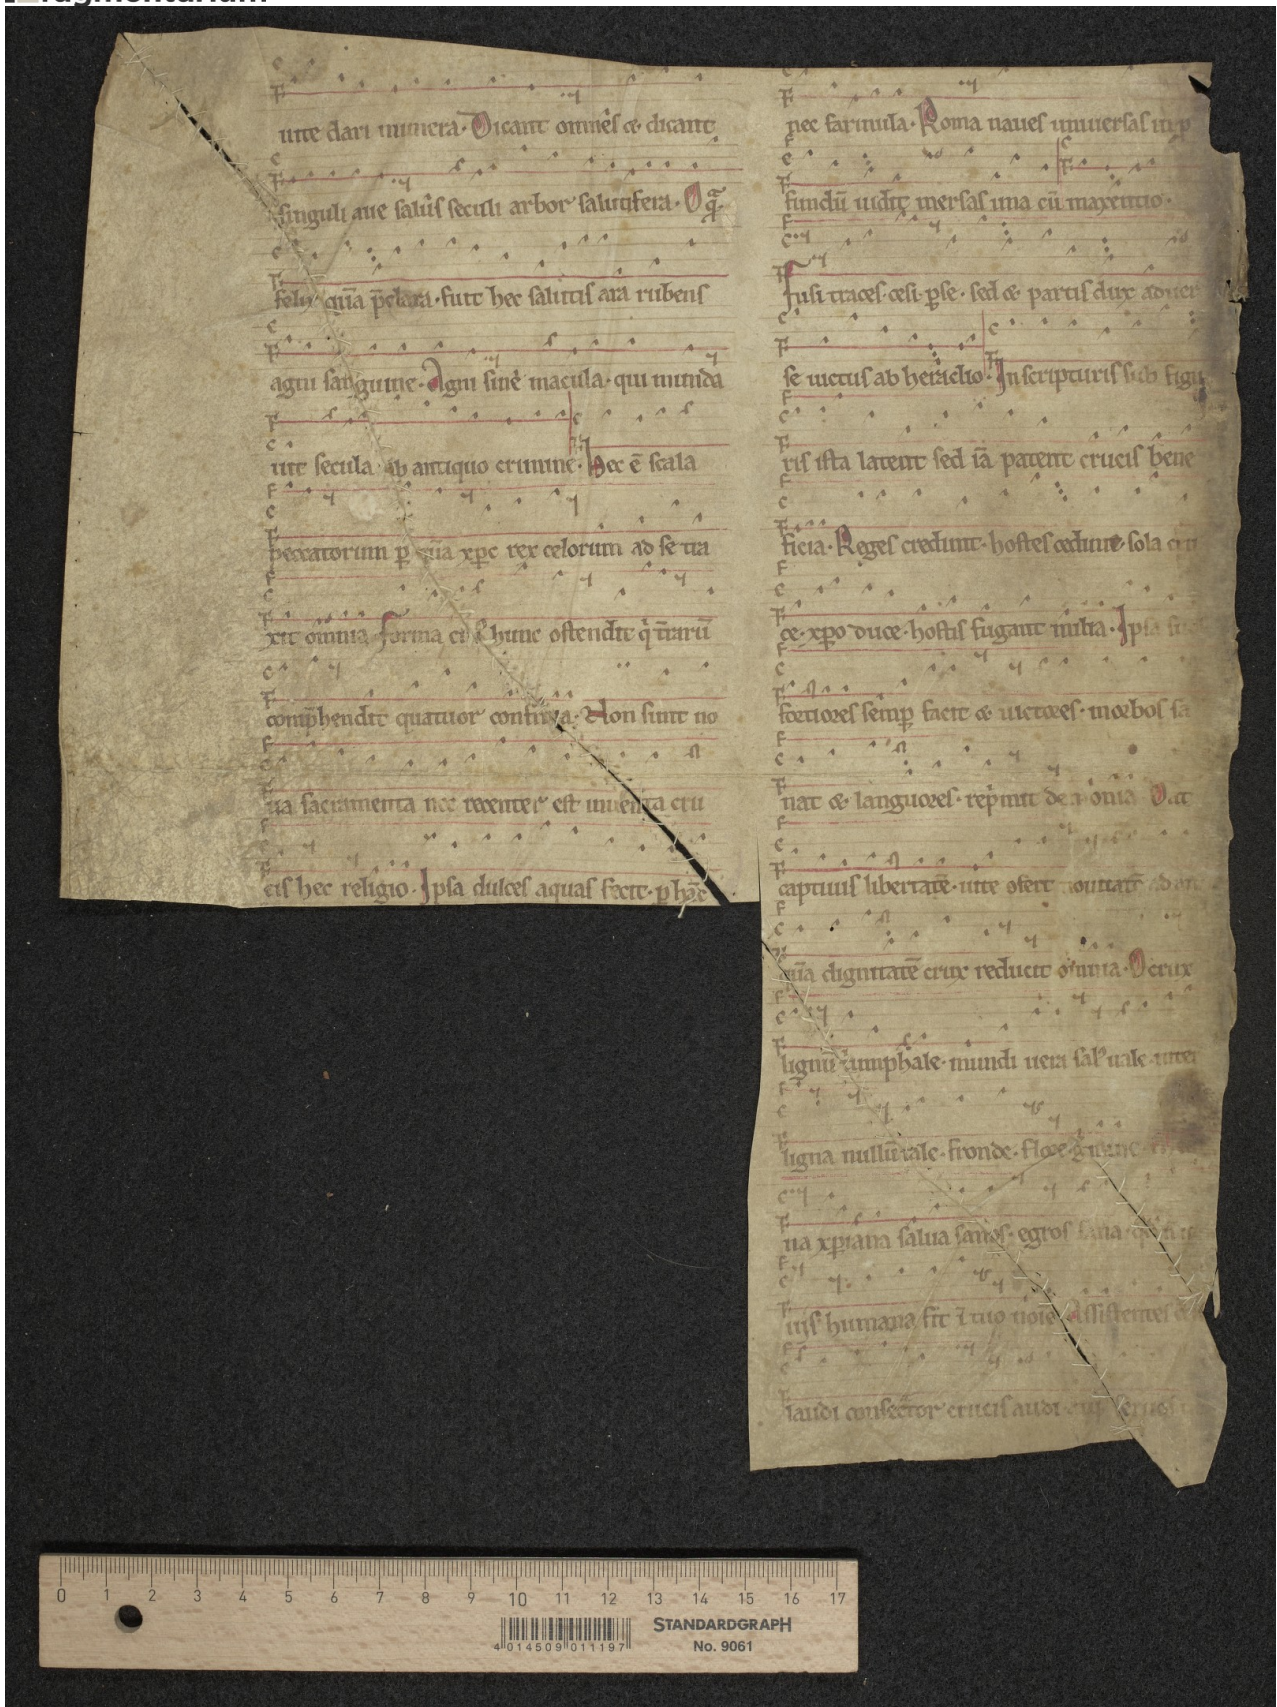 uite dari munera. Dicant omnes & dicant
singuli aue salus seculi arbor salutifera. O q̄
felix quā p̄clara. fuit hec salutis ara rubens
agni sanguine. Agni sine macula. qui munda
uit secula ab antiquo crimine. Hec ē scala
peccatorum p quā xpc rex celorum ad se tra
xit omnia. Forma ei hunc ostendit q̄ t̄rarū
comp̄hendit quatuor confinia. Non sunt no
ua sacramenta nec recenter est inuenta cru
cis hec religio. Ipsa dulces aquas fecit. p hāc
nec farinula. Roma naues uniuersas in p
fundū uidit mersas una cū maxentio.
Fusi traces cesi pse. sed & partis dux aduer
se uictus ab heraclio. In scripturis sub figu
ris ista latent sed iā patent crucis bene
ficia. Reges credunt. hostes cedunt. sola cru
ce. xpo duce. hostis fugant milia. Ipsa suos
fortiores semp facit & uictores. morbos sa
nat & languores. rep̄mit demonia Dat
captiuis libertatē. uite ofert nouitatē ad an
quā dignitatē crux reducit omnia. O crux
lignū t'umphale. mundi uera sal' uale. inter
ligna nullū tale. fronde. flore. ḡmine
na xpiana salua sanos. egros sana. qd n̄
uis humana fit ī tuo noīe Assistentes
laudi consecrator crucis audi seruos
FRAGMENTARIUM
0 1 2 3 4 5 6 7 8 9 10 11 12 13 14 15 16 17
4 014509 011197
STANDARDGRAPH
No. 9061